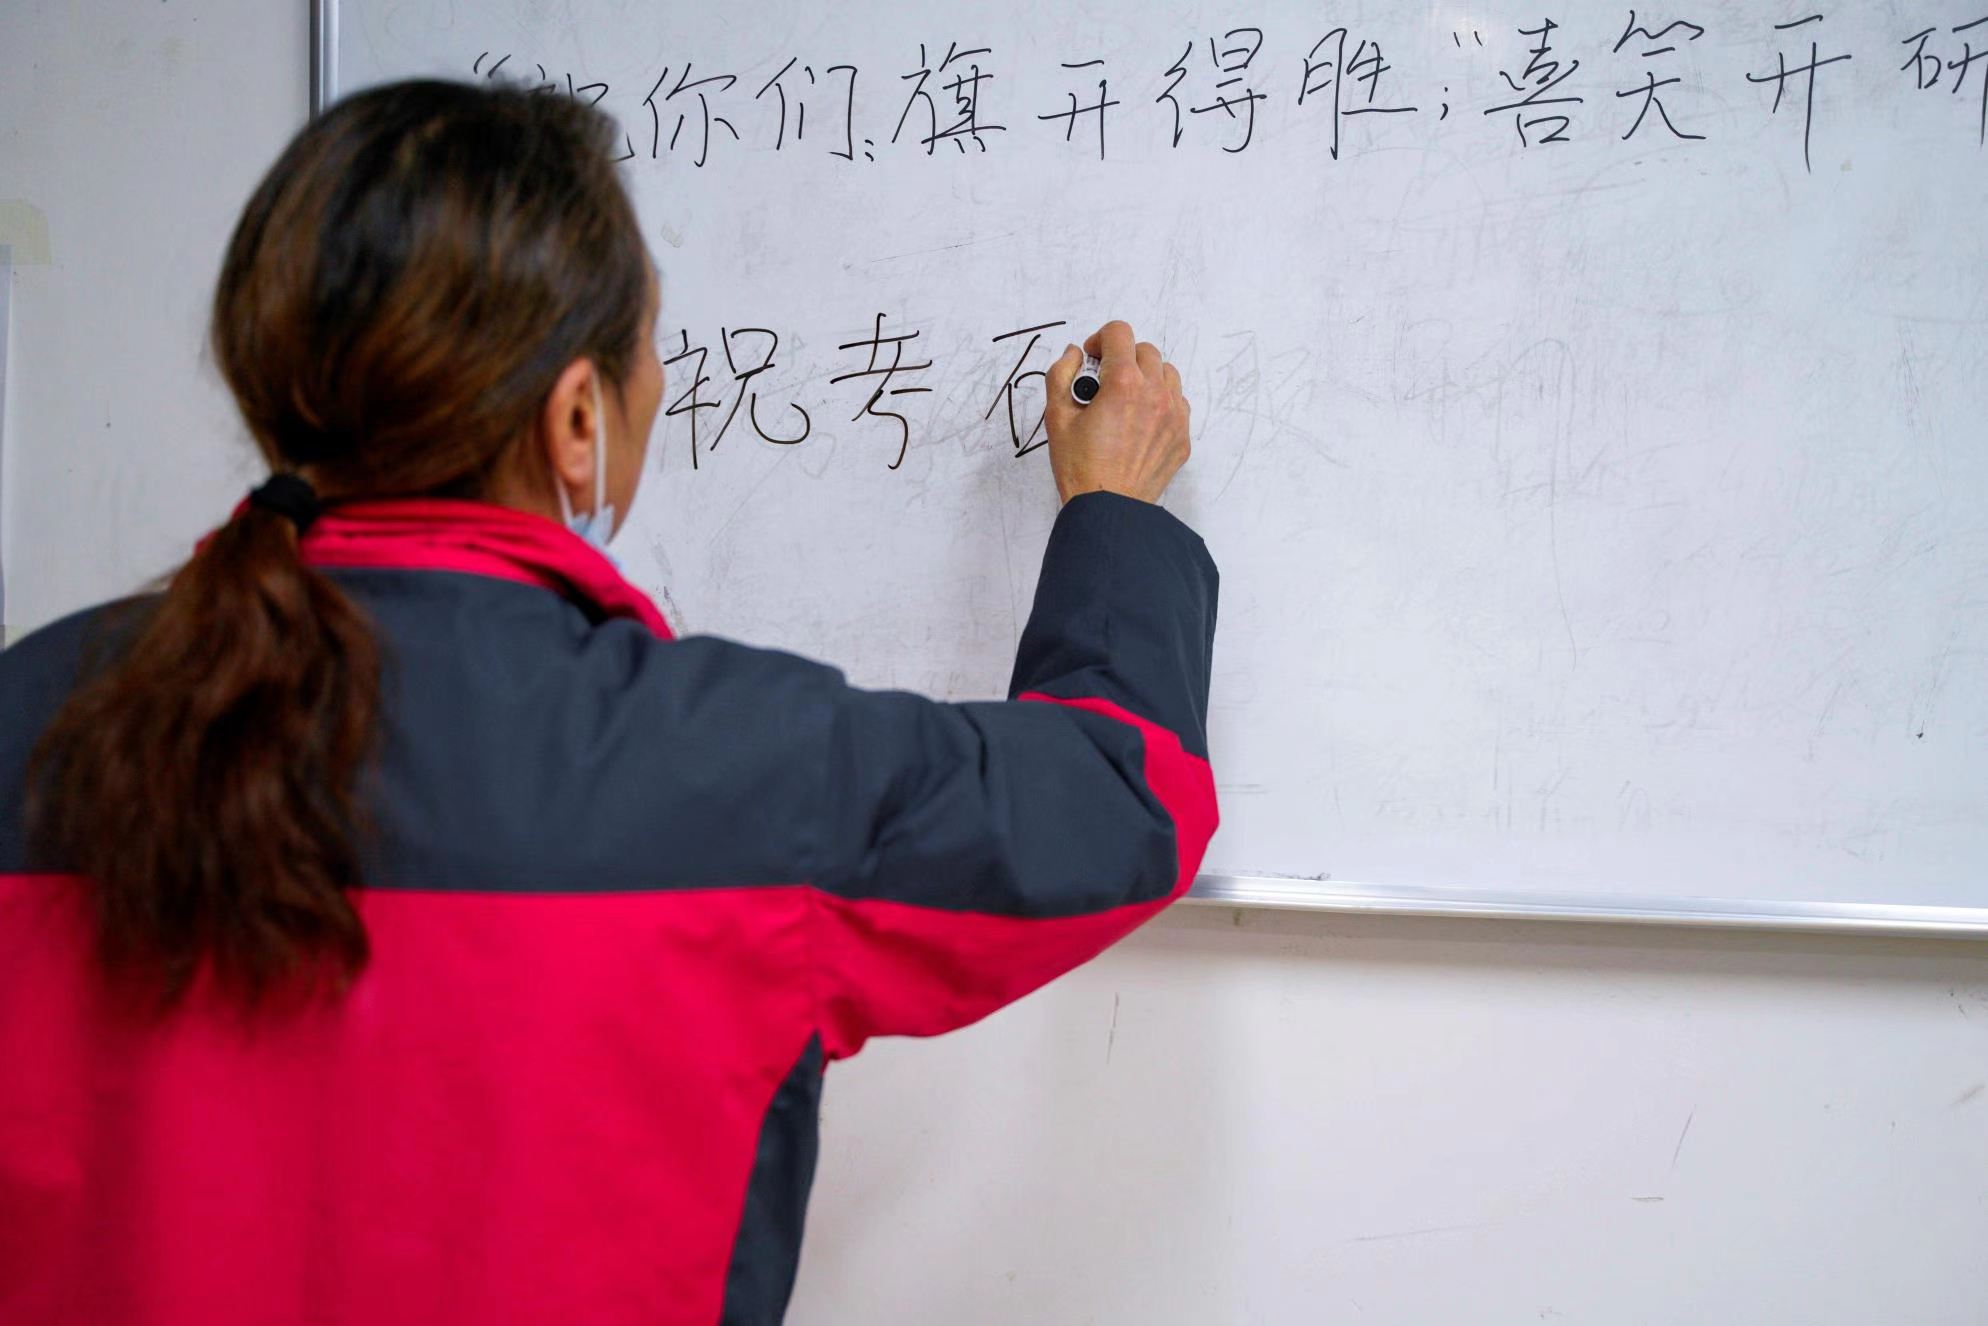 “祝你们:旗开得胜;“喜笑开研
祝考石